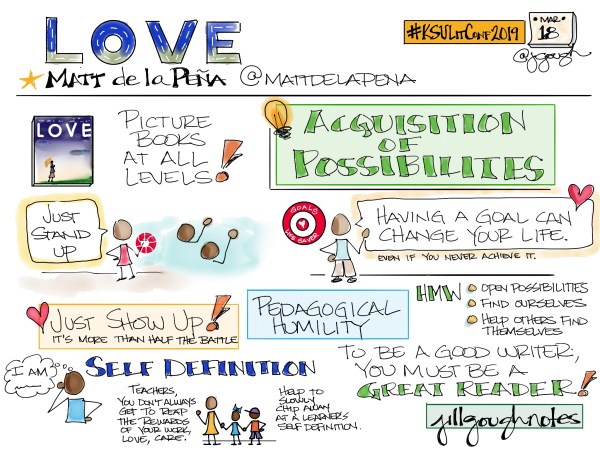 LOVE
#KSULitConf2019
MAR
18
@jgough
MATT de la PEÑA @MATTDELAPENA
LOVE
PICTURE
BOOKS
AT ALL
LEVELS!
ACQUISITION
OF
POSSIBILITES
JUST
STAND
UP
GOALS
HAVING A GOAL CAN
CHANGE YOUR LIFE.
EVEN IF YOU NEVER ACHIEVE IT.
JUST SHOW UP!
IT'S MORE THAN HALF THE BATTLE
PEDAGOGICAL
HUMILITY
HMW
OPEN POSSIBILITIES
FIND OURSELVES
HELP OTHERS FIND
THEMSELVES
I AM
SELF DEFINITION
TEACHERS,
YOU DON'T ALWAYS
GET TO REAP
THE REWARDS
OF YOUR WORK,
LOVE, CARE.
HELP TO
SLOWLY
CHIP AWAY
AT A LEARNER'S
SELF DEFINITION.
TO BE A GOOD WRITER,
YOU MUST BE A
GREAT READER!
jillgoughnotes